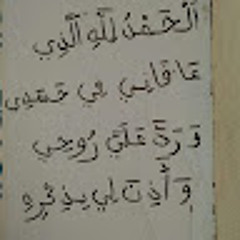 اَلْحَمْدُ لِلَّهِ الَّذِي
عَافَانِي فِي جَسَدِي
وَرَدَّ عَلَيَّ رُوحِي
وَأَذِنَ لِي بِذِكْرِهِ